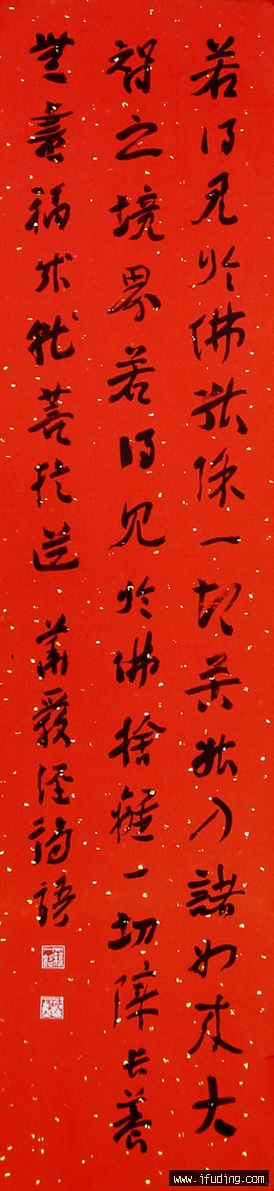 若得見於佛能除一切苦能入諸如来大
智之境界若得見於佛捨離一切障長養
無盡福成就菩提道 華嚴經語
www.ifuding.com